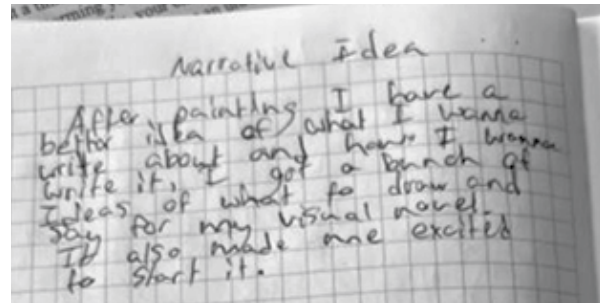 Narrative Idea
After painting I have a
better idea of what I wanna
write about and how I wanna
write it, I got a bunch of
Ideas of what to draw and
say for my visual novel.
It also made me excited
to start it.